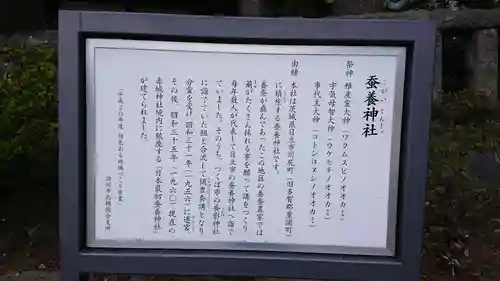 蚕養神社
祭神　稚産霊大神（ワクムスビノオオカミ）
宇気母智大神（ウケモチノオオカミ）
事代主大神（コトシロヌシノオオカミ）
由緒　本社は茨城県日立市川尻町（旧多賀郡豊浦町）
に鎮座する蚕養神社です。
養蚕が盛んであったこの地区の養蚕農家では
繭がたくさん採れる事を願って講をつくり
毎年数人が代表して日立市の蚕養神社へ詣で
ていました。そのうち、つくば市の蚕影神社
に詣でていた組と合流して
分霊を受け昭和三十一年（一九五六）に遷宮、
その後、昭和三十五年（一九六〇）現在の
赤城神社境内に鎮座する「日本最初蚕養神社」
が建てられました。
「平成20年度 特色ある地域づくり事業」
渋川市北橘総合支所